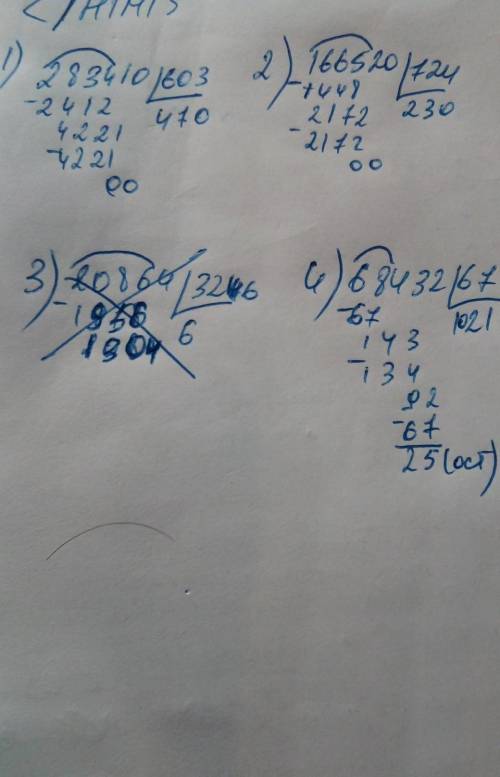 1) 283410 | 603
- 2412 470
4221
- 4221
00
2) 166520 | 724
- 1448 230
2172
- 2172
00
3) 20864 | 3246
- 6
4) 68432 | 67
- 67 1021
143
- 134
92
- 67
25 (ост)